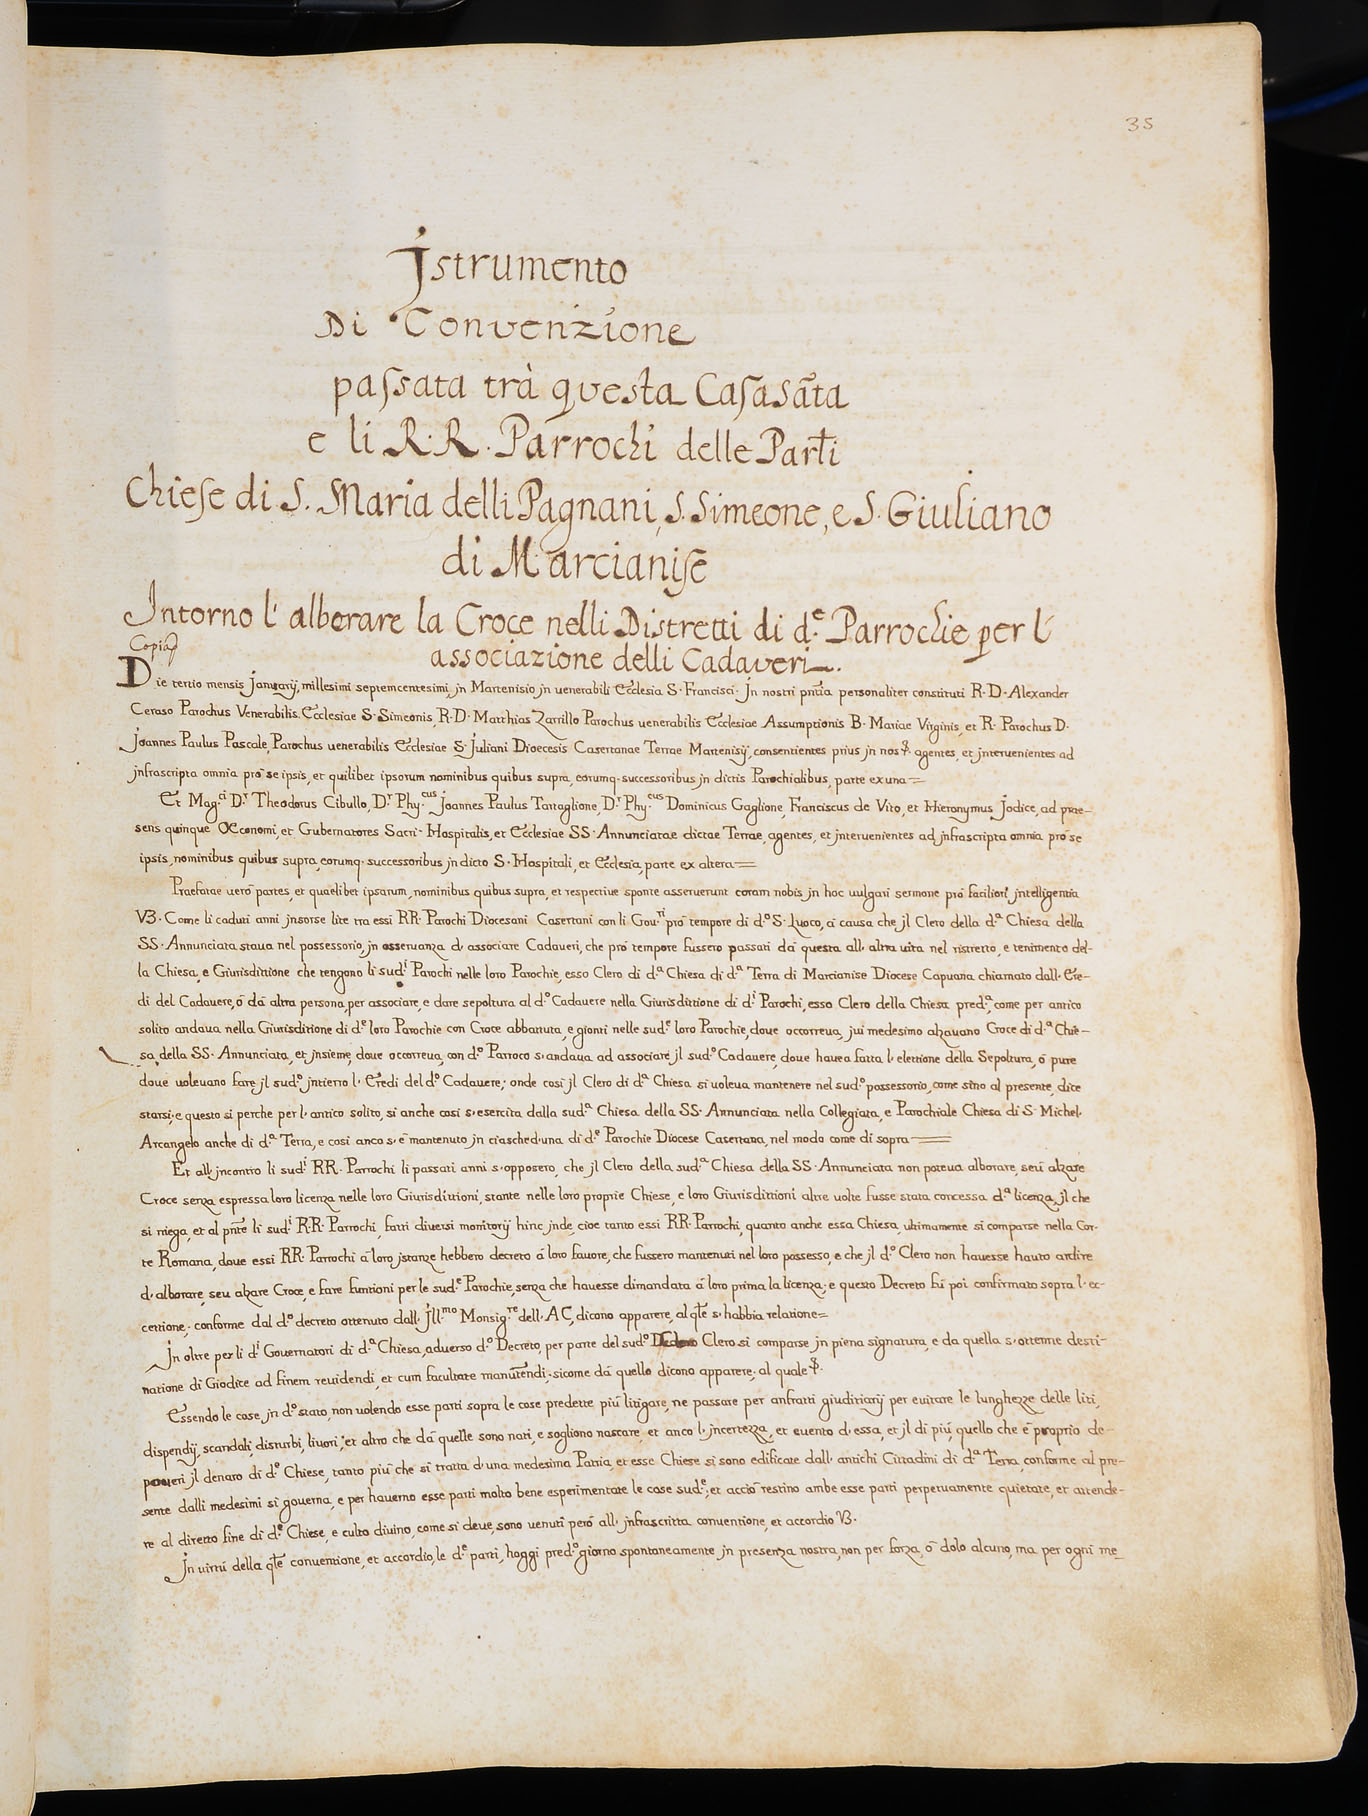 35
Jstrumento
Di Convenzione
passata trà questa Casa Sãta
e li R.R. Parrochi delle Parr̃li
Chiese di S. Maria delli Pagnani, S. Simeone, e S. Giuliano
di Marcianise
Intorno l' alborare la Croce nelli Distretti di d.e Parrochie per l'
associazione delli Cadaveri.
Copia
Die tertio mensis Januarij, millesimi septemcentesimi, jn Martenisio jn uenerabili Ecclesia S. Francisci. Jn nostri pñtia personaliter constituti R. D. Alexander
Ceraso Parochus Venerabilis Ecclesiae S. Simeonis, R. D. Matthias Zarrillo Parochus uenerabilis Ecclesiae Assumptionis B. Mariae Virginis, et R. Parochus D.
Joannes Paulus Pascale, Parochus uenerabilis Ecclesiae S. Juliani Dioecesis Casertanae Terrae Martenisij, consentientes prius jn nos agentes, et jnteruenientes ad
jnfrascripta omnia prò se ipsis, et quilibet ipsorum nominibus quibus supra, eorumq. successoribus jn dictis Parochialibus, parte ex una=
Et Mag.ci D.r Theodorus Cibullo, D.r Phy.cus Joannes Paulus Tartaglione, D.r Phy.cus Dominicus Gaglione, Franciscus de Vito, et Hieronymus Jodice, ad prae-
sens quinque OEconomi, et Gubernatores Sacri Hospitalis, et Ecclesiae SS. Annunciatae dictae Terrae, agentes, et jnteruenientes ad jnfrascripta omnia prò se
ipsis, nominibus quibus supra, eorumq. successoribus jn dicto S. Hospitali, et Ecclesia, parte ex altera=
Praefatae uerò partes, et quaelibet ipsarum, nominibus quibus supra, et respectiue sponte asseruerunt coram nobis jn hoc uulgari sermone prò faciliori jntelligentia
V3. Come li caduti anni jnsorse lite tra essi RR. Parochi Diocesani Casertani con li Gou.ri prò tempore di d.o S. Luoco, à causa che jl Clero della d.a Chiesa della
SS. Annunciata staua nel possessorio, jn osseruanza d' associare Cadaueri, che prò tempore fussero passati dà questa all' altra uita nel ristretto, e tenimento del-
la Chiesa, e Giurisdittione che tengono li sud.i Parochi nelle loro Parochie, esso Clero di d.a Chiesa di d.a Terra di Marcianise Diocese Capuana chiamato dall' Ere-
di del Cadauere, ò dà altra persona, per associare, e dare sepoltura al d.o Cadauere nella Giurisdittione di d.i Parochi, esso Clero della Chiesa pred.a, come per antico
solito andaua nella Giurisditione di d.e loro Parochie con Croce abbattuta, e gionti nelle sud.e loro Parochie, doue occorreua, jui medesimo alzauano Croce di d.a Chie-
sa, della SS. Annunciata, et jnsieme, doue occorreua, con d.o Parroco s' andaua ad associare jl sud.o Cadauere, doue hauea fatta l' elettione della Sepoltura, ò pure
doue uoleuano fare jl sud.o jntierro l' Eredi del d.o Cadauere; onde così jl Clero di d.a Chiesa si uoleua mantenere nel sud.o possessorio, come sino al presente, dice
starsi; e questo si perche per l' antico solito, si anche così s' esercita dalla sud.a Chiesa della SS. Annunciata nella Collegiata, e Parochiale Chiesa di S. Michel'
Arcangelo anche di d.a Terra, e così anco s' è mantenuto jn ciasched'una di d.e Parochie Diocese Casertana, nel modo come di sopra
Et all' jncontro li sud.i RR. Parrochi li passati anni s' opposero, che jl Clero della sud.a Chiesa della SS. Annunciata non poteua alborare, seù alzare
Croce senza espressa loro licenza nelle loro Giurisdittioni, stante nelle loro proprie Chiese, e loro Giurisdittioni altre uolte fusse stata concessa d.a licenza, jl che
si niega, et al pñte li sud.i R.R. Parrochi, fatti diuersi monitorij hinc jnde, cioe tanto essi RR. Parrochi, quanto anche essa Chiesa, ultimamente si comparse nella Cor-
te Romana, doue essi RR. Parrochi à loro jstanze hebbero decreto à loro fauore, che fussero mantenuti nel loro possesso, e che jl d.o Clero non hauesse hauto ardire
d' alborare, seu alzare Croce, e fare funtioni per le sud.e Parochie, senza che hauesse dimandata à loro prima la licenza; e questo Decreto fù poi confirmato sopra l' ec-
cettione; conforme dal d.o decreto ottenuto dall' Jll.mo Monsig.re dell' AC, dicono apparere, al qle s' habbia relatione=
Jn oltre per li d.i Gouernatori di d.a Chiesa, aduerso d.o Decreto, per parte del sud.o Clero si comparse jn piena signatura, e da quella s' ottenne desti-
natione di Giodice ad finem reuidendi, et cum facultate manutẽndi; sicome dà quello dicono apparere; al quale
Essendo le cose jn d.o stato, non uolendo esse parti sopra le cose predette più litigare, ne passare per anfratti giuditiarij per euitare le lunghezze delle liti,
dispendij, scandali, disturbi, liuori, et altro che dà quelle sono nati, e sogliono nascare, et anco l' jncertezza, et euento d' essa, et jl di più quello che è proprio de
poueri jl denaro di d.e Chiese, tanto più che si tratta d'una medesima Patria, et esse Chiese si sono edificate dall' antichi Cittadini di d.a Terra, conforme al pre-
sente dalli medesimi si gouerna, e per hauerno esse parti molto bene esperimentate le cose sud.e; et acciò restino ambe esse parti perpetuamente quietate, et attende-
re al diretto fine di d.e Chiese, e culto diuino, come si deue, sono uenuti però all' jnfrascritta conuentione, et accordio V3.
Jn uirtù della qle conuentione, et accordio, le d.e parti, hoggi pred.o giorno spontaneamente jn presenza nostra, non per forza, ò dolo alcuno, ma per ogni me-